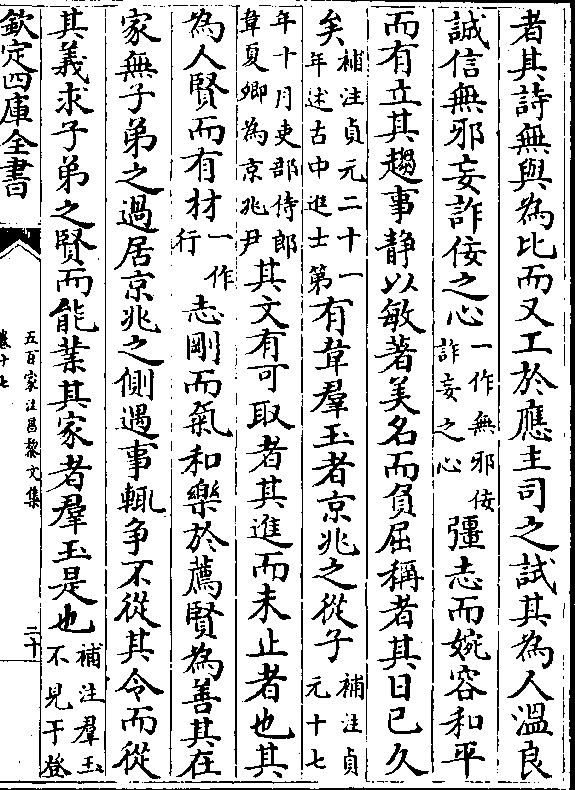 者其詩無與為比而又工於應主司之試其為人溫良
誠信無邪妄詐佞之心一作無邪佞詐妄之心彊志而婉容和平
而有立其趨事靜以敏著美名而負屈稱者其日已久
矣補注貞元二十一年述古中進士第有韋羣玉者京兆之從子補注貞元十七
年十月吏部侍郎韋夏卿為京兆尹其文有可取者其進而未止者也其
為人賢而有材一作行志剛而氣和樂於薦賢為善其在
家無子弟之過居京兆之側遇事輒爭不從其令而從
其義求子弟之賢而能業其家者羣玉是也補注羣玉不見于登
欽定四庫全書
五百家注昌黎文集
卷十七
二十